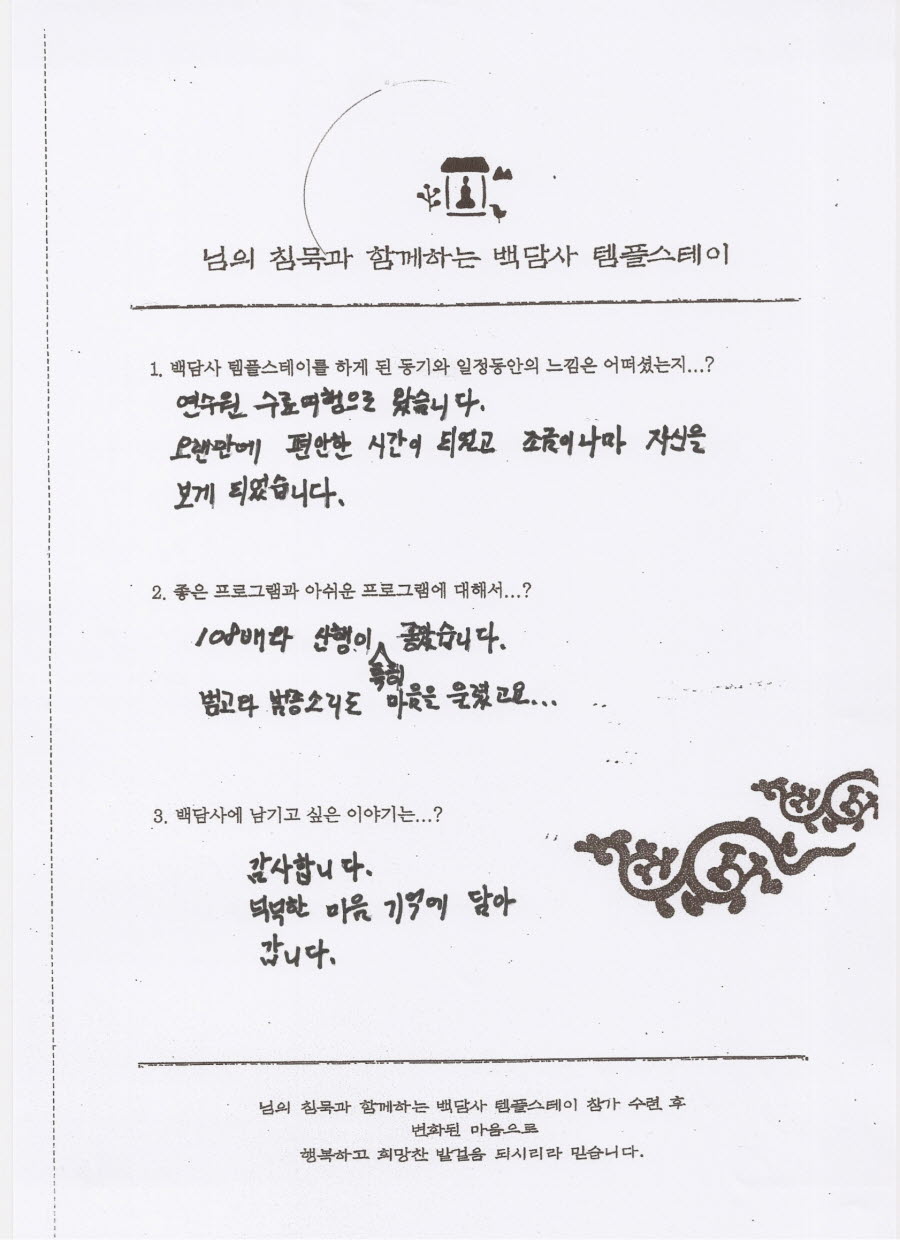 님의 침묵과 함께하는 백담사 템플스테이
1. 백담사 템플스테이를 하게 된 동기와 일정동안의 느낌은 어떠셨는지...?
연수원 수료여행으로 왔습니다.
오랜만에 편안한 시간이 되었고 조금이나마 자신을
보게 되었습니다.
2. 좋은 프로그램과 아쉬운 프로그램에 대해서...?
108배와 산행이 특히 좋았습니다.
범고다 범종소리도 마음을 울렸고요...
3. 백담사에 남기고 싶은 이야기는...?
감사합니다.
넉넉한 마음 기억에 담아
갑니다.
님의 침묵과 함께하는 백담사 템플스테이 참가 수련 후
변화된 마음으로
행복하고 희망찬 발걸음 되시리라 믿습니다.